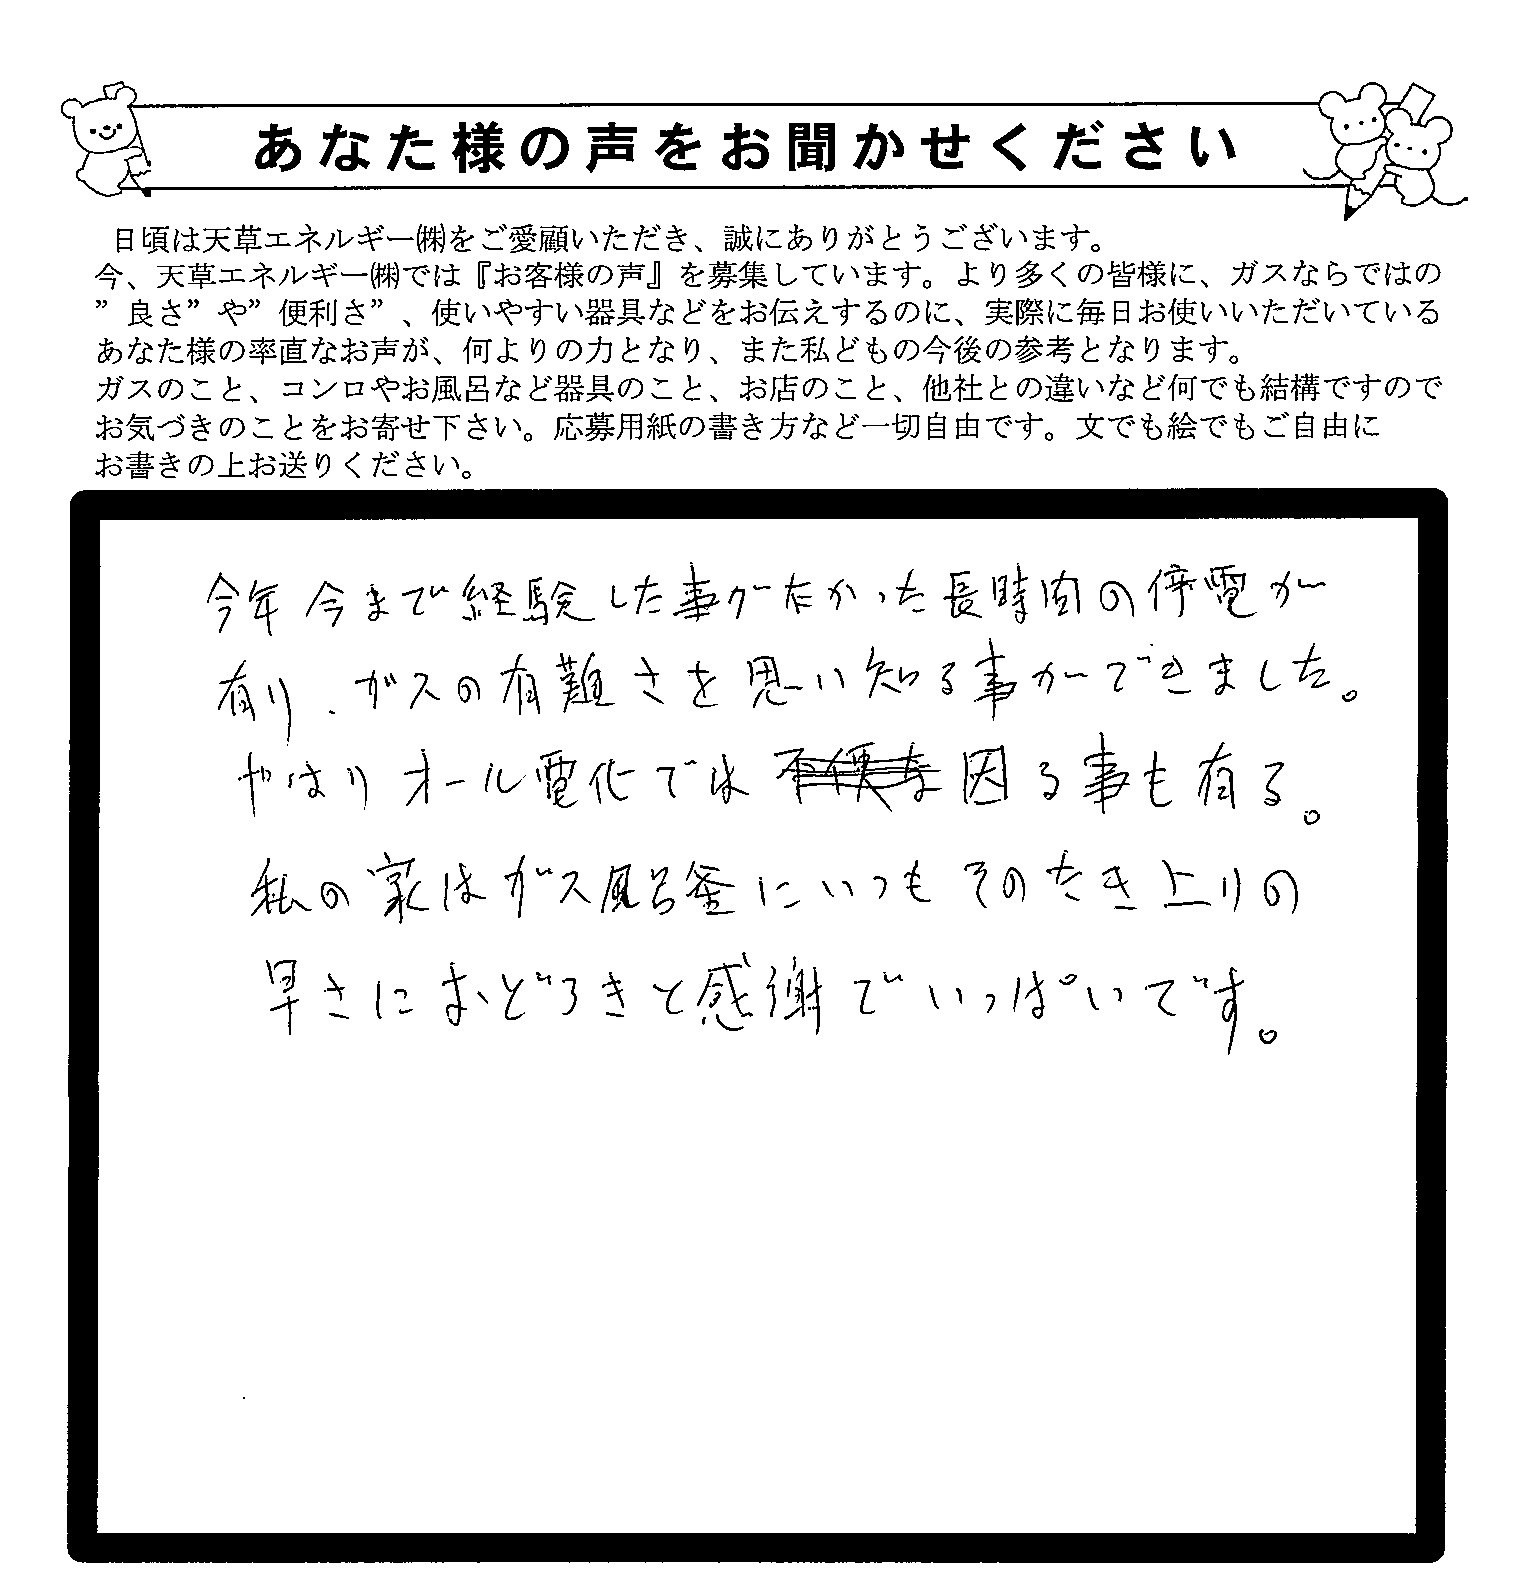 あなた様の声をお聞かせください
日頃は天草エネルギー㈱をご愛顧いただき、誠にありがとうございます。
今、天草エネルギー㈱では『お客様の声』を募集しています。より多くの皆様に、ガスならではの
”良さ”や”便利さ”、使いやすい器具などをお伝えするのに、実際に毎日お使いいただいている
あなた様の率直なお声が、何よりの力となり、また私どもの今後の参考となります。
ガスのこと、コンロやお風呂など器具のこと、お店のこと、他社との違いなど何でも結構ですので
お気づきのことをお寄せ下さい。応募用紙の書き方など一切自由です。文でも絵でもご自由に
お書きの上お送りください。
今年今まで経験した事がなかった長時間の停電が
有り、ガスの有難さを思い知る事ができました。
やはりオール電化では困る事も有る。
私の家はガス風呂釜にいつもそのたき上りの
早さにおどろきと感謝でいっぱいです。